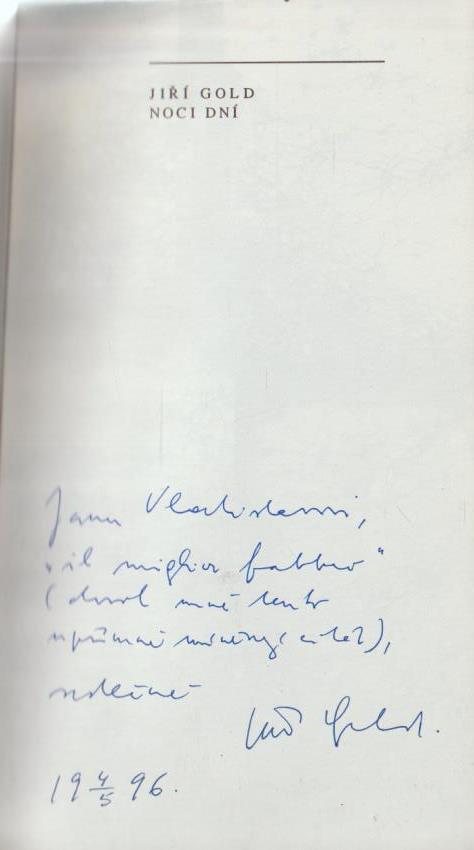 JIŘÍ GOLD
NOCI DNÍ
Janu Vladislavovi,
„il miglior fabbro"
(dovol mně tento
upřímně míněný citát),
srdečně
Jiří Gold.
19 4/5 96.